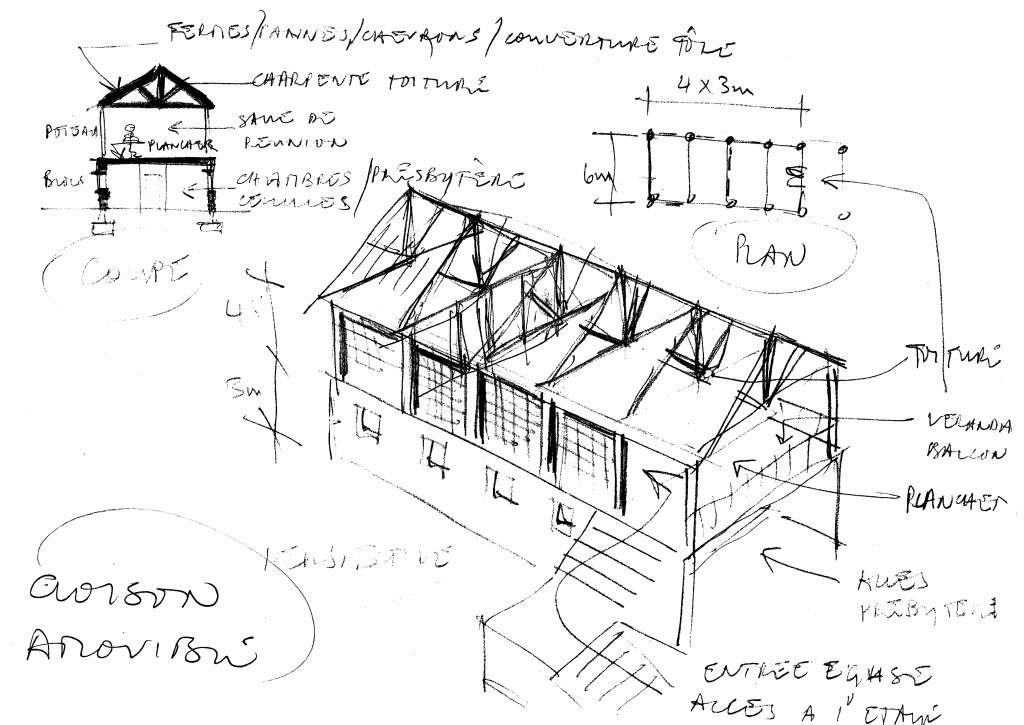 FERMES/PANNES/CHEVRONS/COUVERTURE TÔLE
CHARPENTE TOITURE
POTEAU
SALLE DE
RÉUNION
PLANCHER
BLOCS
CHAMBRES
CELLULES/PRESBYTÈRE
COUPE
4 x 3m
6m
PLAN
3m
TOITURE
VERANDA
BALCON
PLANCHER
ACCES
PRESBYTERE
CLOISON
AMOVIBLE
ENTREE EGLISE
ACCES A l'ETAGE